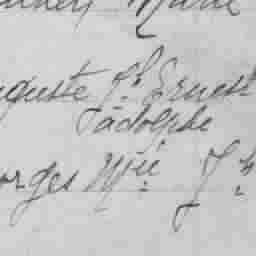 Marie
guste J.h Ernest
adolphe
orges M.ie J.h